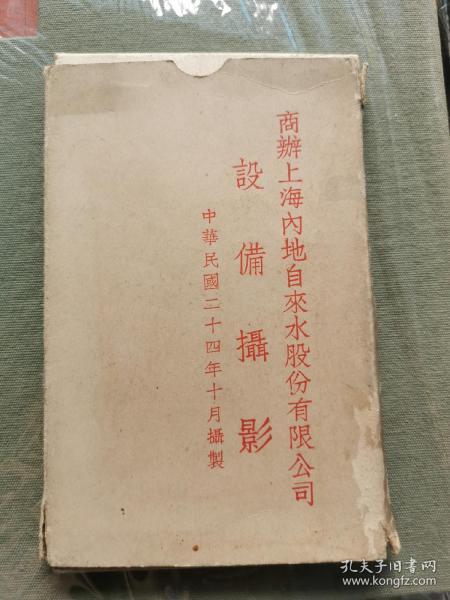 商辦上海內地自來水股份有限公司
設備攝影
中華民國二十四年十月攝製
孔夫子旧书网
www.kongfz.com